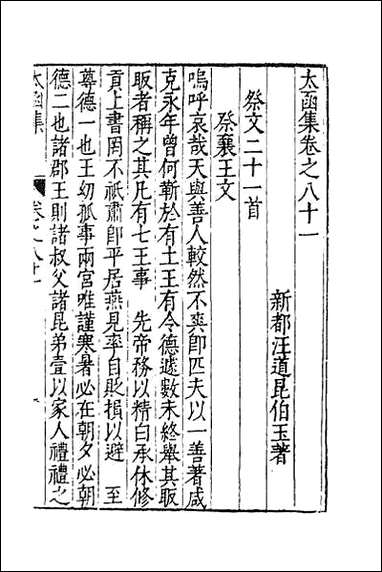 太函集卷之八十一
新都汪道昆伯玉著
祭文二十一首
祭襄王文
嗚呼哀哉天與善人較然不爽卽匹夫以一善著咸
克永年曾何靳於有土王有令德遽數未終舉其畈
畈者稱之其凡有七王事 先帝務以精白承休修
貢上書罔不祗肅卽平居燕見率自貶損以避 至
尊德一也王幼孤事兩宮唯謹寒暑必在朝夕必朝
德二也諸郡王則諸叔父諸昆弟壹以家人禮禮之
太函集 卷之八十一